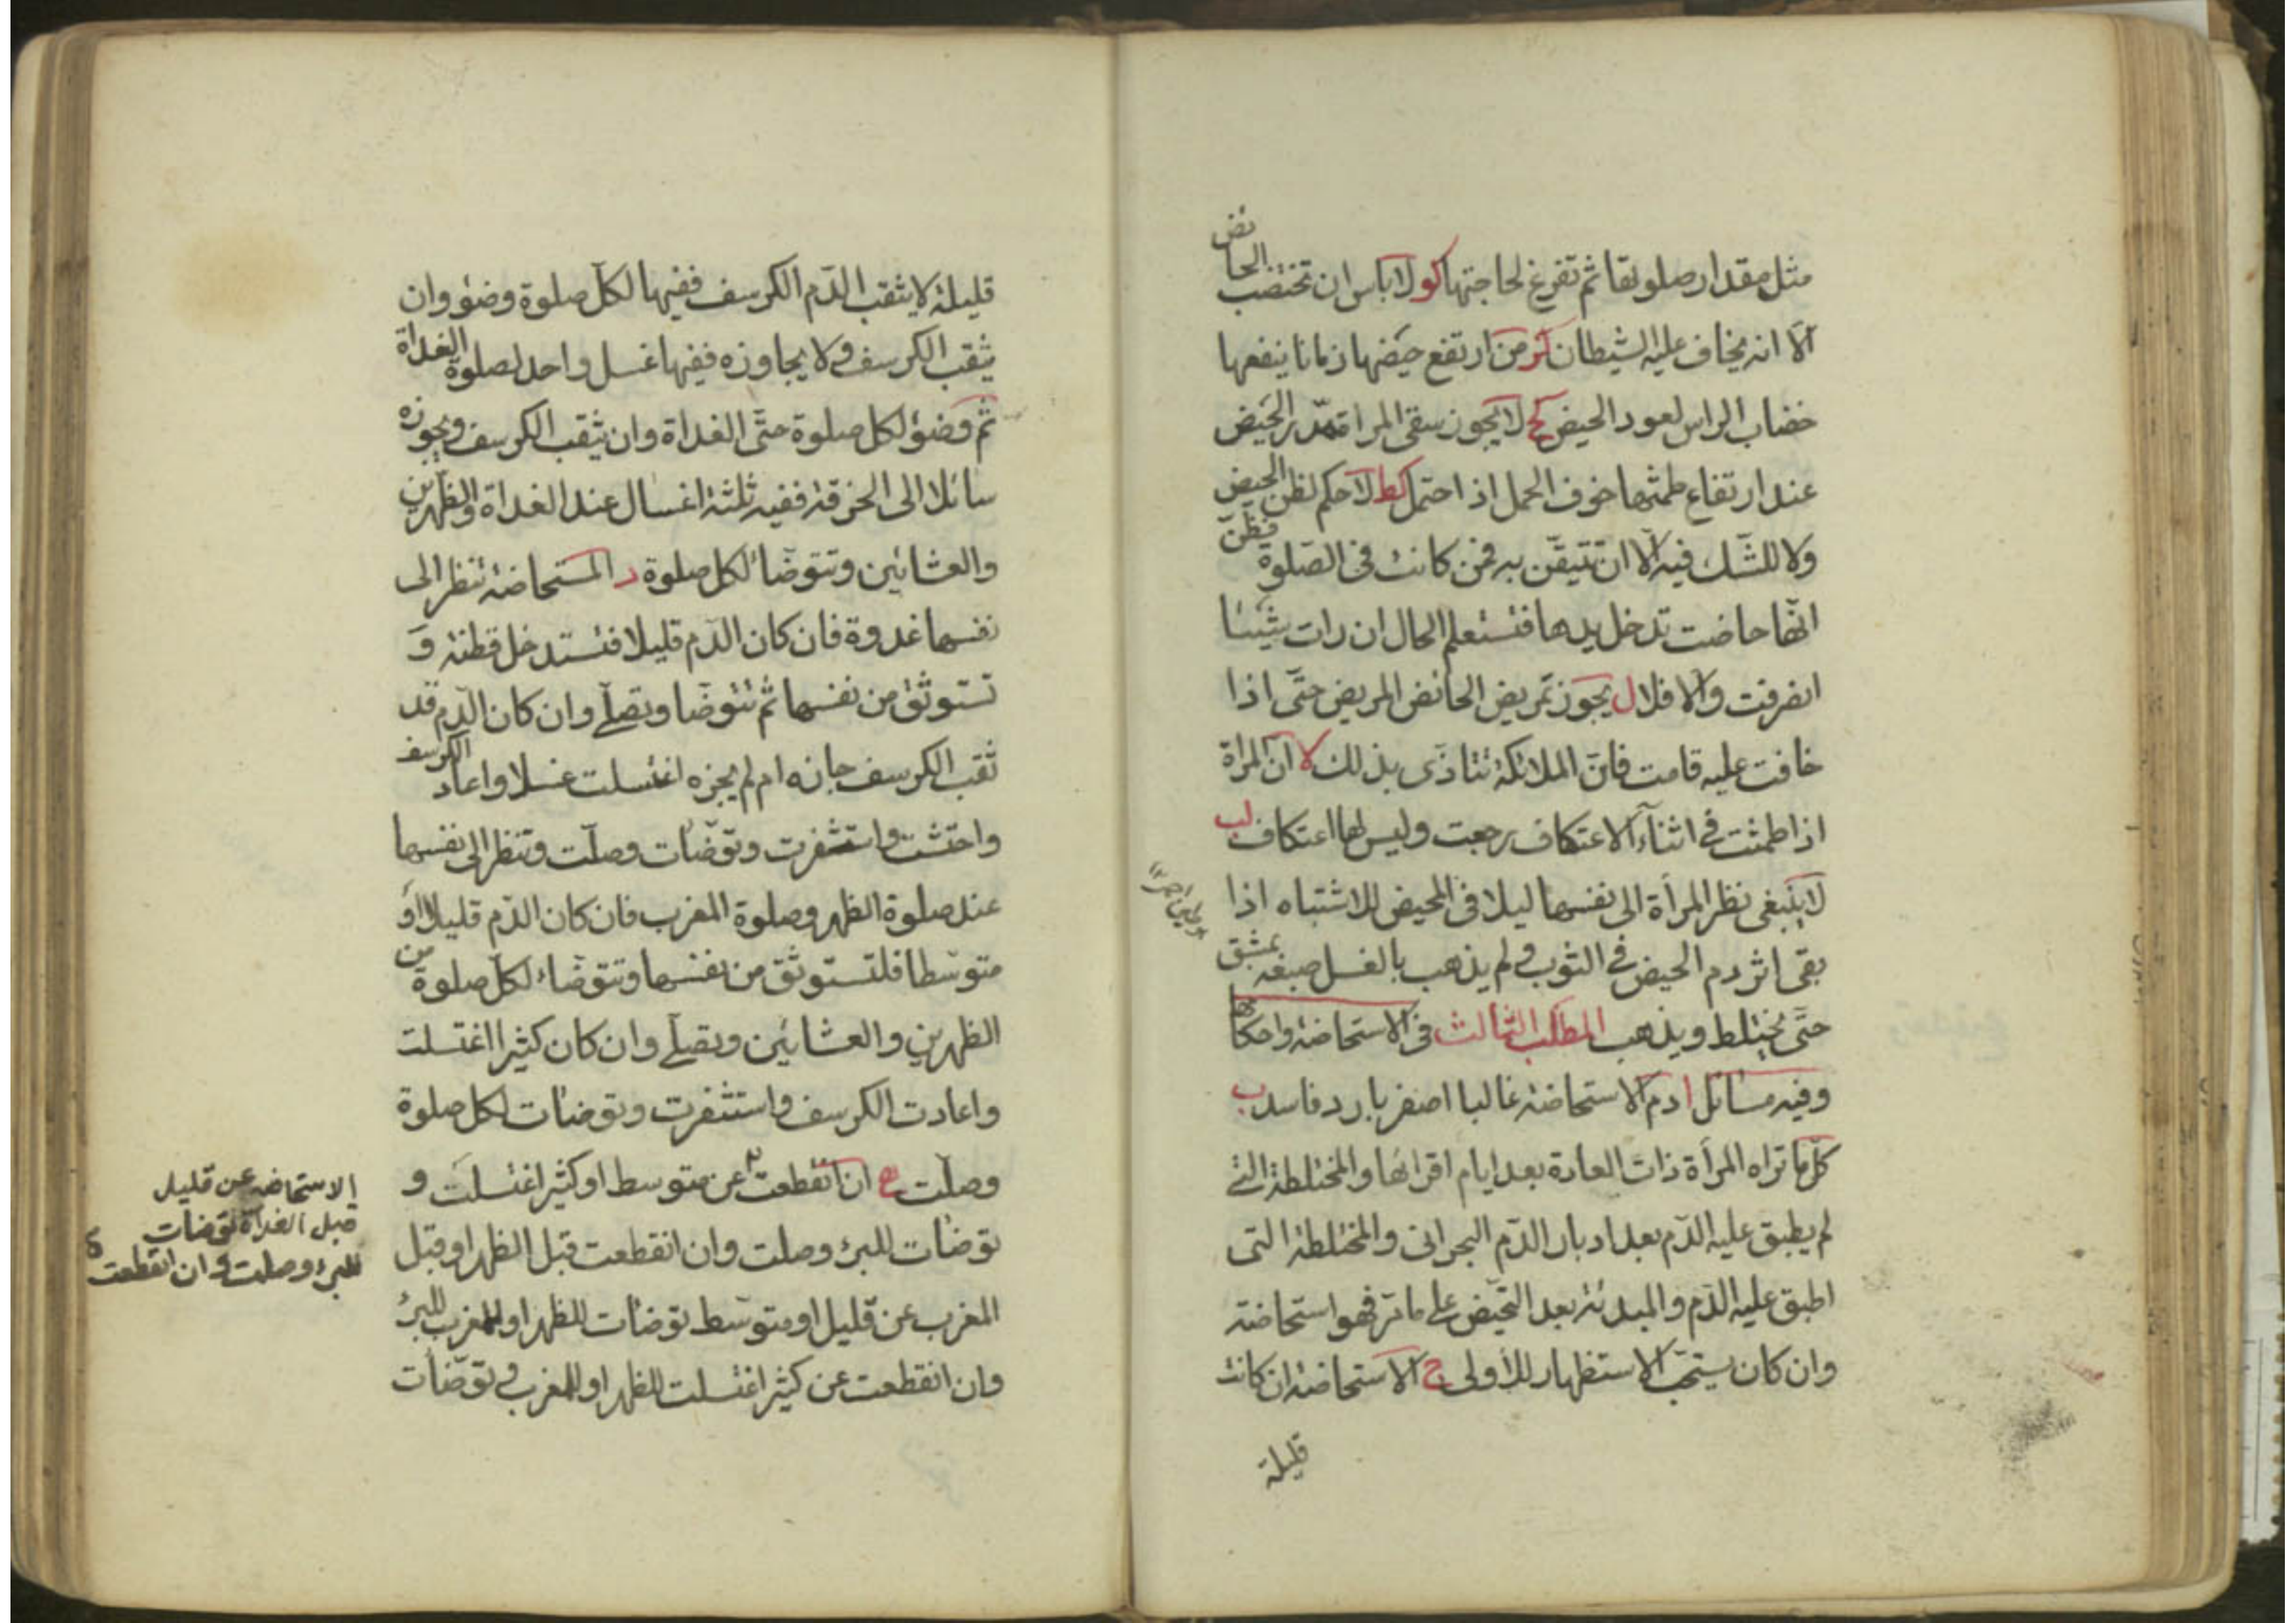 مثل مقدار صلوتها ثم تفرغ لحاجتها كو لا باس ان تختضب الحائض
الا انه يخاف عليه الشيطان كز من ارتفع حيضها زمانا ينفعها
خضاب الراس لعود الحيض كح لا يجوز سقى المراة مدر الحيض
عند ارتفاع طمثها خوف الحمل اذا احتمل كط لا حكم لظن الحيض
ولا للشك فيه الا ان تتيقن به فمن كانت فى الصلوة فظن
انها حاضت تدخل يدها فتستعلم الحال ان رات شيئا
انصرفت والا فلا ل يجوز تمريض الحائض المريض حتى اذا
خافت عليه قامت فان الملائكة تتاذى بذلك لا ان المراة
اذا طمثت فى اثناء الاعتكاف رجعت وليس لها اعتكاف لب
لا ينبغى نظر المرأة الى نفسها ليلا فى المحيض للاشتباه اذا
بقى اثر دم الحيض فى الثوب و لم يذهب بالغسل صبغه بمشق
حتى يختلط ويذهب المطلب الثالث فى الاستحاضة واحكامها
وفيه مسائل ا دم الاستحاضة غالبا اصفر بارد فاسد ب
كل ما تراه المرأة ذات العادة بعد ايام اقرائها والمختلطة التى
لم يطبق عليه الدم بعد ادبار الدم البحرانى والمختلطة التى
اطبق عليه الدم والمبدئة بعد التحيض على ما مر فهو استحاضة
وان كان يستحب الاستظهار للأولى ج الاستحاضة ان كانت
قليلة
قليلة لا يثقب الدم الكرسف ففيها لكل صلوة وضوء وان
يثقب الكرسف و لا يجاوزه ففيها غسل واحد لصلوة الغداة
ثم وضوء لكل صلوة حتى الغداة وان يثقب الكرسف ويجوزه
سائلا الى الخرقة ففيه ثلثة اغسال عند الغداة والظهرين
والعشائين وتتوضا لكل صلوة د المستحاضة تنظر الى
نفسها غدوة فان كان الدم قليلا فتستدخل قطنة و
تستوثق من نفسها ثم تتوضا وتصلى وان كان الدم قد
ثقب الكرسف جازه ام لم يجزه اغتسلت غسلا واعاد الكرسف
واحتشت واستثفرت وتوضات وصلت وتنظر الى نفسها
عند صلوة الظهر وصلوة المغرب فان كان الدم قليلا او
متوسطا فلتستوثق من نفسها وتتوضاء لكل صلوة من
الظهرين والعشائين وتصلى وان كان كثيرا اغتسلت
واعادت الكرسف واستثفرت وتوضات لكل صلوة
وصلت ه ان انقطعت عن متوسط او كثير اغتسلت و
توضات للبرء وصلت وان انقطعت قبل الظهر او قبل
المغرب عن قليل او متوسط توضات للظهر او للمغرب للبرء
وان انقطعت عن كثير اغتسلت للظهر او للمغرب و توضات
الاستحاضه عن قليل
قبل الغداة توضات
للبرء وصلت وان انقطعت